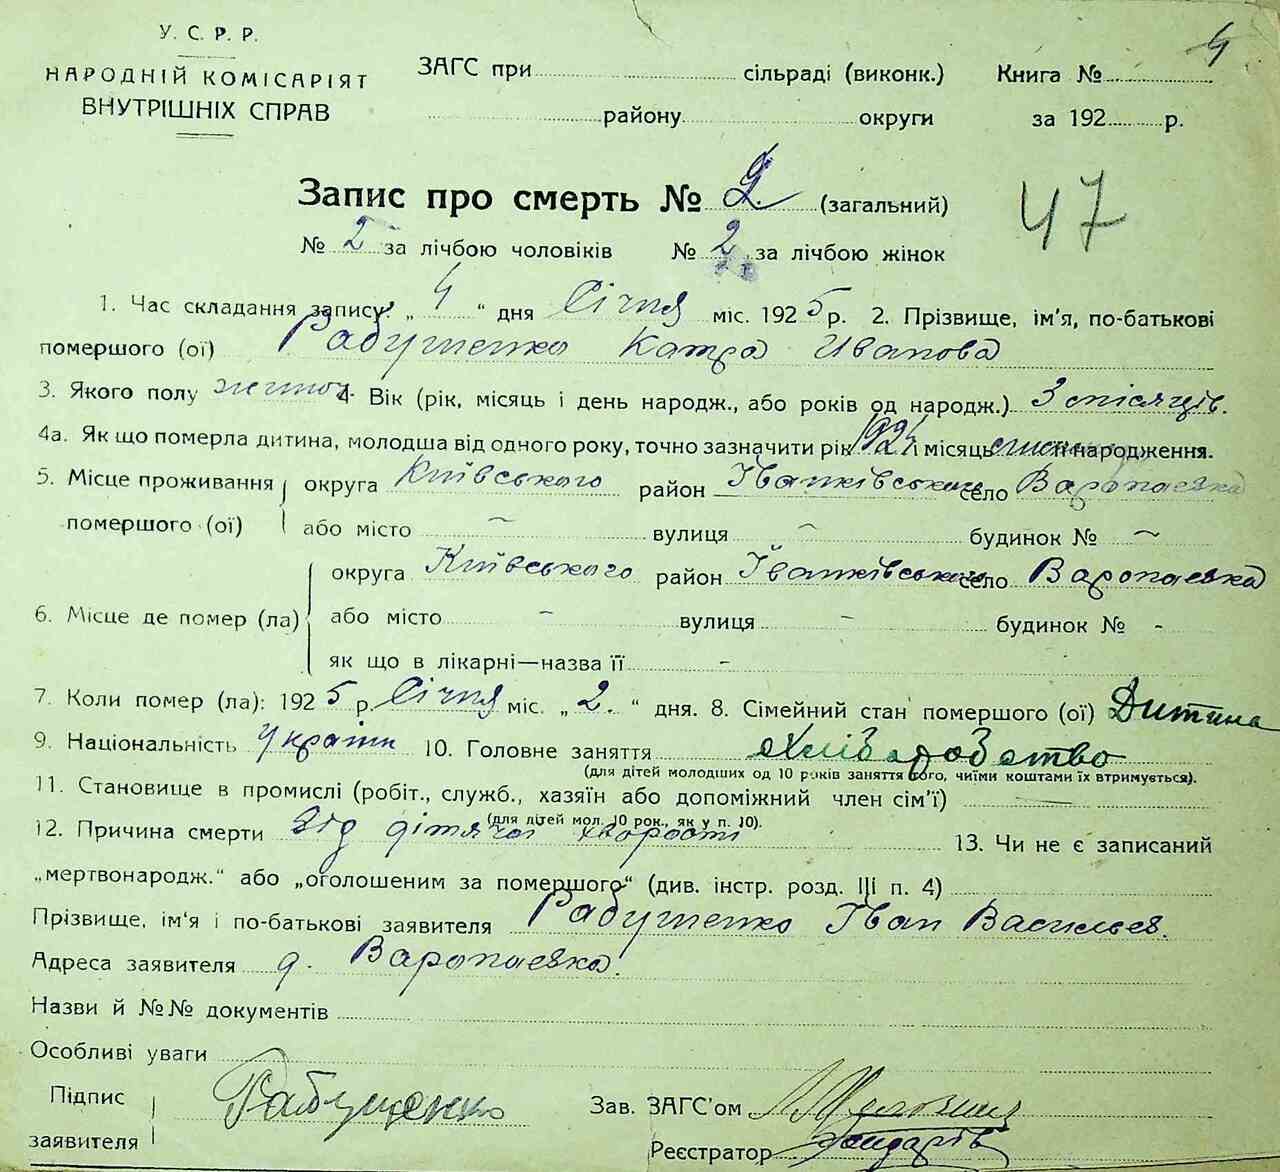 4
У. С. Р. Р.
НАРОДНІЙ КОМІСАРІЯТ
ВНУТРІШНІХ СПРАВ
ЗАГС при сільраді (виконк.) Книга №
району округи за 192 р.
Запис про смерть № 2 (загальний)
47
№ 2 за лічбою чоловіків № 2 за лічбою жінок
1. Час складання запису: „ 4 “ дня Січня міс. 1925 р. 2. Прізвище, ім'я, по-батькові
помершого (ої) Рабушенко Катра Иванова
3. Якого полу жіноч. 4. Вік (рік, місяць і день народж., або років од народж.) 3 місяців.
4а. Як що померла дитина, молодша від одного року, точно зазначити рік 1924 і місяць її народження.
5. Місце проживання округа Київського район Іванківського село Варопаевка
помершого (ої) або місто ~ вулиця ~ будинок № ~
округа Київського район Іванківського село Варопаевка
6. Місце де помер (ла) або місто - вулиця - будинок № -
як що в лікарні—назва її -
7. Коли помер (ла): 1925 р. Січня міс. „ 2. “ дня. 8. Сімейний стан помершого (ої) Дитина
9. Національність україн 10. Головне заняття хлібаробство
(для дітей молодших од 10 років заняття того, чиїми коштами їх втримується).
11. Становище в промислі (робіт., служб., хазяїн або допоміжний член сім'ї) —
(для дітей мол. 10 рок., як у п. 10).
12. Причина смерти Від дітячої хворости 13. Чи не є записаний
„мертвонародж.“ або „оголошеним за помершого“ (див. інстр. розд. III п. 4)
Прізвище, ім'я і по-батькові заявителя Рабушенко Іван Васильев.
Адреса заявителя д. Варопаевка.
Назви й №№ документів
Особливі уваги
Підпис
заявителя Рабушенко
Зав. ЗАГС'ом
Реєстратор